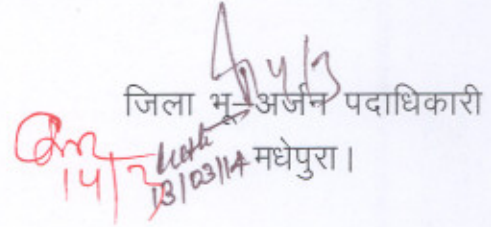 14/3
जिला भू-अर्जन पदाधिकारी
मधेपुरा।
14/3
13/03/14